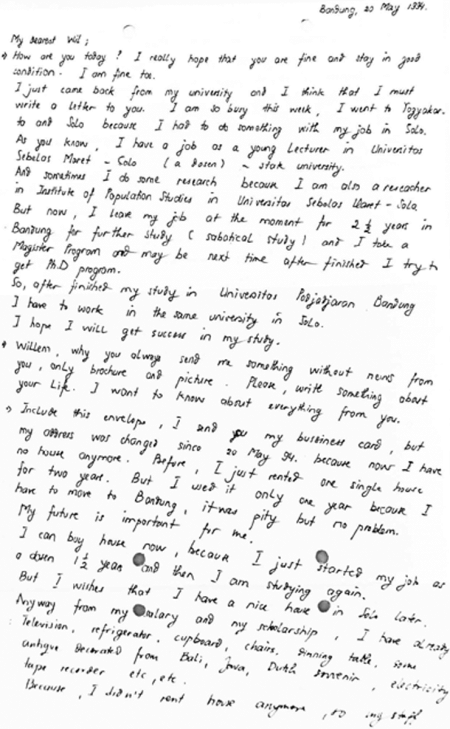 Bandung, 20 May 1994.
My dearest Wil;
How are you today? I really hope that you are fine and stay in good
condition. I am fine too.
I just came back from my university and I think that I must
write a letter to you. I am so busy this week, I went to Yogyakar.
ta and Solo because I had to do something with my job in Solo.
As you know, I have a job as a young Lecturer in Universitas
Sebelas Maret - Solo (a dosen) - state university.
And sometimes I do some research because I am also a reseacher
in Institute of Population Studies in Universitas Sebelas Maret - Solo
But now, I leave my job at the moment for 2 1/2 years in
Bandung for further study (sabatical study) and I take a
Magister Program and may be next time after finished I try to
get Ph.D program.
So, after finished my study in Universitas Padjadjaran Bandung
I have to work in the same university in Solo.
I hope I will get success in my study.
Willem, why you always send me something without news from
you, only brochure and picture. Please, write something about
your Life. I want to know about everything from you.
Include this envelope, I send you my bussiness card, but
my address was changed since 20 May 94. because now I have
no house anymore. Before, I just rented one single house
for two years. But I used it only one year because I
have to move to Bandung, it was pity but no problem.
My future is important for me.
I can buy house now, because I just started my job as
a dosen 1 1/2 year and then I am studying again.
But I wishes that I have a nice house in Solo later.
Anyway from my salary and my scholarship, I have already
Television, refrigerator, cupboard, chairs, dinning table, some
antique decorated from Bali, Java, Dutch souvenir, electricity
tape recorder etc, etc.
Because, I didn't rent house anymore, so my stuff